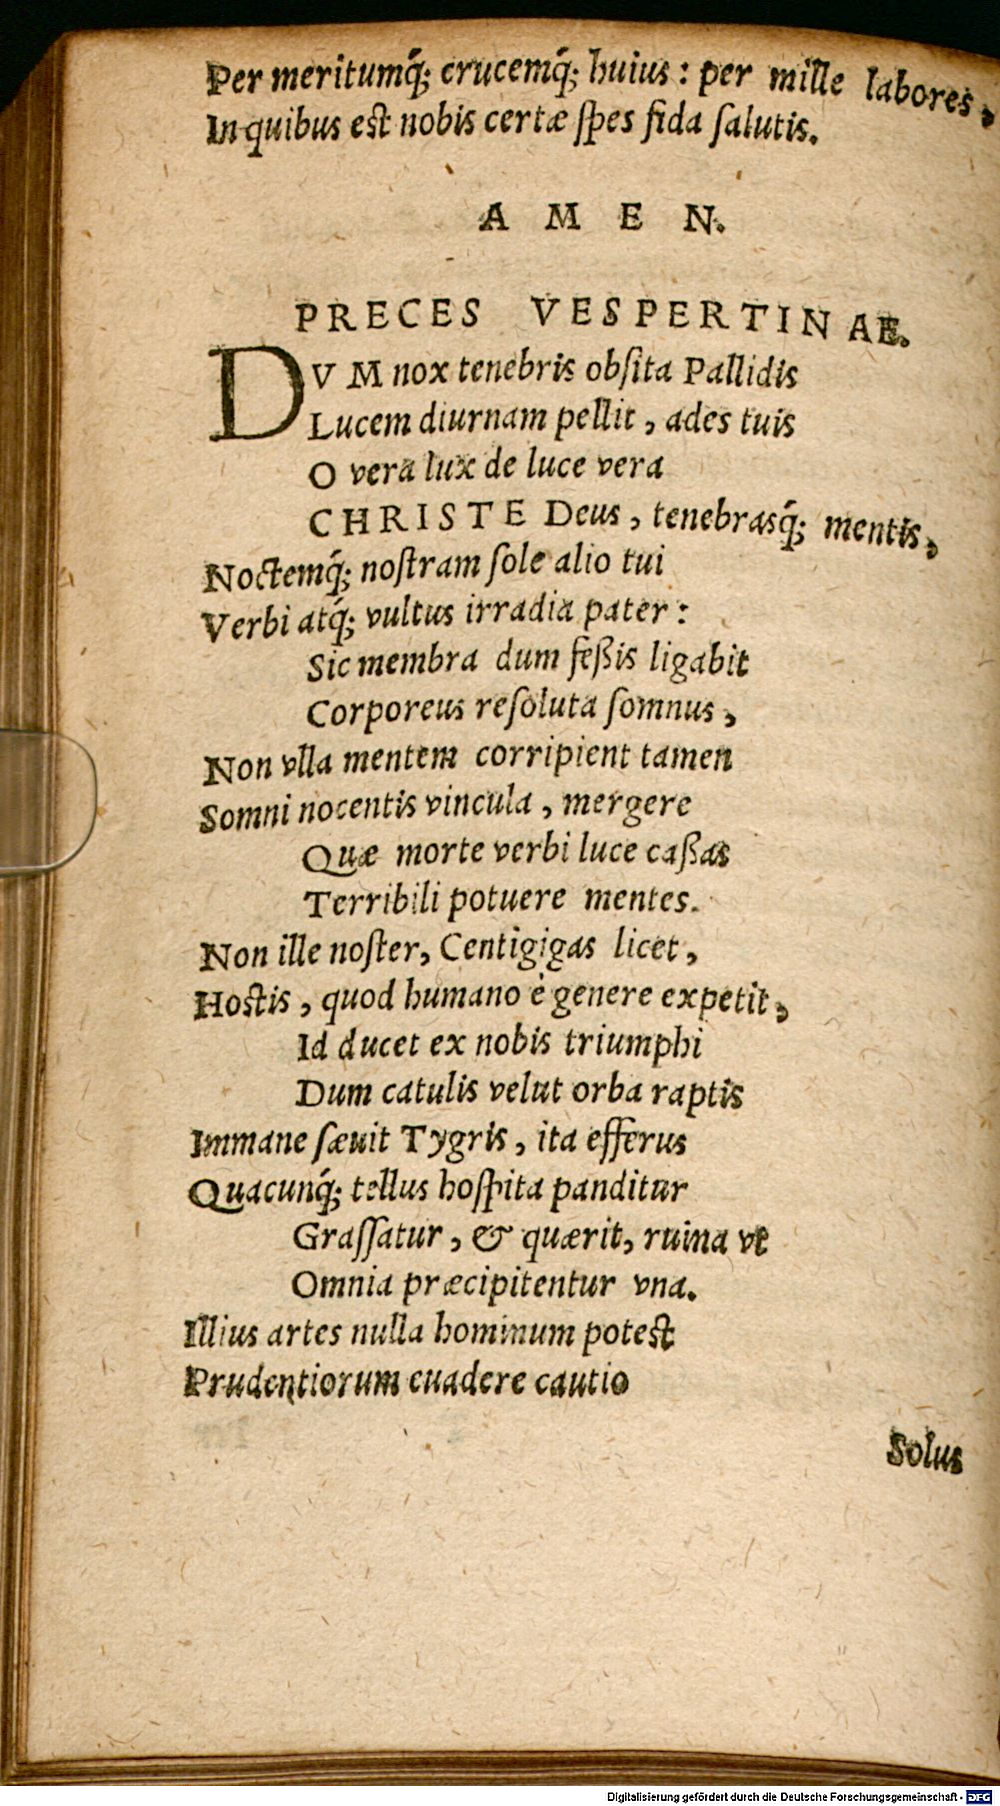 Per meritumq́; crucemq́; huius : per mille labores,
In quibus est nobis certæ ſpes fida ſalutis.
A M E N.
PRECES VESPERTINAE.
DVM nox tenebris obſita Pallidis
Lucem diurnam pellit, ades tuis
O vera lux de luce vera
CHRISTE Deus, tenebrasq́; mentis,
Noctemq́; noſtram ſole alio tui
Verbi atq́; vultus irradia pater :
Sic membra dum feßis ligabit
Corporeus reſoluta ſomnus,
Non vlla mentem corripient tamen
Somni nocentis vincula, mergere
Quæ morte verbi luce caßas
Terribili potuere mentes.
Non ille noſter, Centigigas licet,
Hostis, quod humano è genere expetit,
Id ducet ex nobis triumphi
Dum catulis velut orba raptis
Immane ſæuit Tygris, ita efferus
Quacunq́; tellus hoſpita panditur
Graſſatur, & quærit, ruina vt
Omnia præcipitentur vna.
Illius artes nulla hominum potest
Prudentiorum euadere cautio
Solus
Digitalisierung gefördert durch die Deutsche Forschungsgemeinschaft - DFG